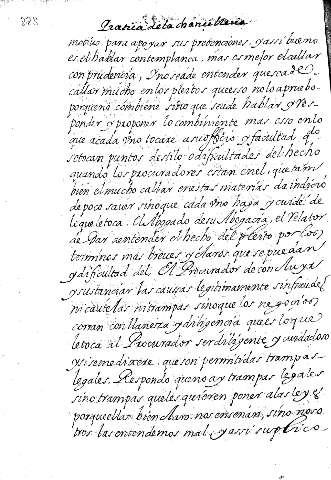 Pratica de la chancilleria
motivo para apoyar sus pretenciones, y assi bueno
es el hablar con templanza, mas es mejor el callar
con prudencia, Y no seade entender que sea de
callar mucho en los pleitos que esso no lo apruebo
porque no combiene sino que seade hablar, y res-
ponder y proponer lo combiniente mas esso en lo
que acada Uno tocare a su oficio y facultad q.
se tocan puntos de stilo o dificultades del hecho
quando los procuradores estan en el, que tam
bien el mucho callar en estas materias da indicio
de poco saver sino que cada Uno haga y cuide de
lo que le toca. El Abogado de su Abogacia, el Relator
de Dar a entender el hecho del pleito por los
terminos mas breves, y claros que se puedan
y dificultad del El Procurador de con
y sustanciar las causas legitimamente sin fraude
ni cautelas ni trampas sino que los negocios
corran con llaneza y diligencia que es lo que
le toca al Procurador ser diligente y cuidadoso
y si se me dixere que son permitidas trampas
legales. Respondo que no ay trampas legales
sino trampas que les quieren poner a las leyes
porque ellas bien claro nos enseñan, sino noso
tros las entendemos mal, y assi suplico